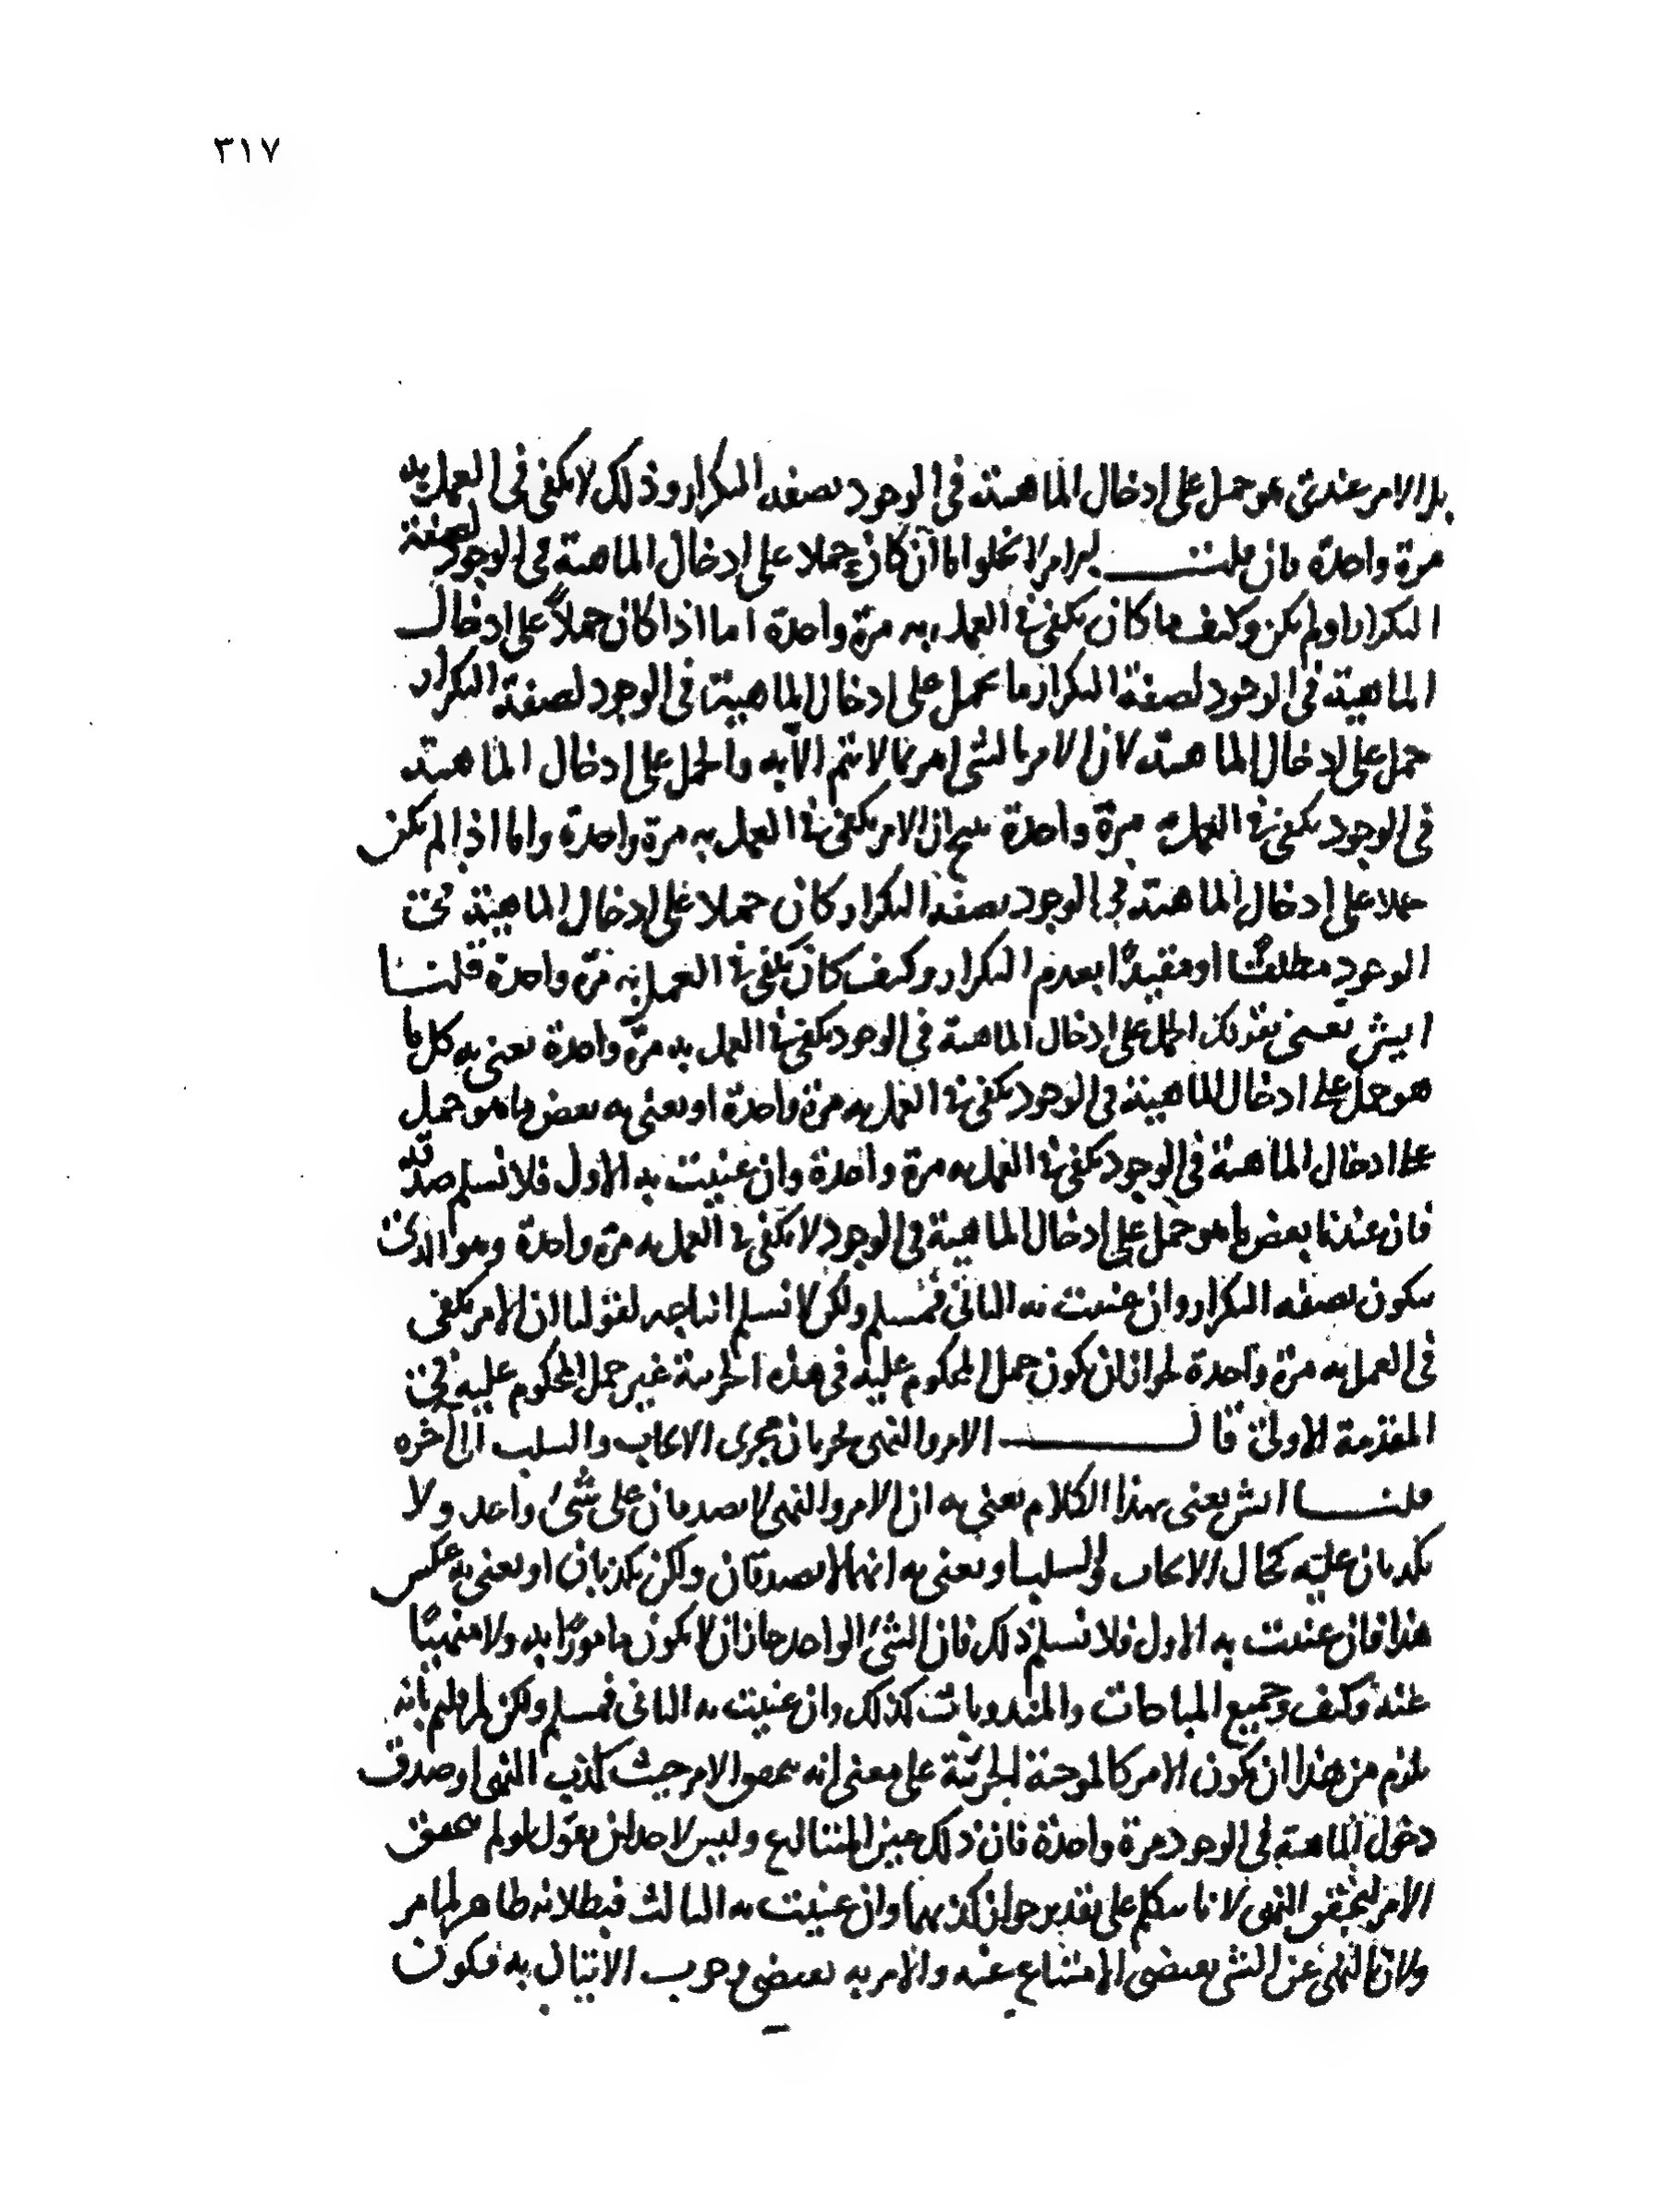 ٣١٧
بل الامر عندى هو حمل على ادخال الماهية فى الوجود بصفة التكرار وذلك لا يكفى فى العمل به
مرة واحدة فان قلت الامر لا يخلو اما ان كان حملا على ادخال الماهية فى الوجود بصفة
التكرار او لم يكن وكيف ما كان يكفى فى العمل به مرة واحدة اما اذا كان حملاً على ادخال
الماهية فى الوجود بصفة التكرار فما يحمل على ادخال الماهية فى الوجود بصفة التكرار
حمل على ادخال الماهية لان الامر بالشى امر بما لا يتم الا به والحمل على ادخال الماهية
فى الوجود يكفى فى العمل به مرة واحدة ينتج ان الامر يكفى فى العمل به مرة واحدة واما اذا لم يكن
حملا على ادخال الماهية فى الوجود بصفة التكرار كان حملا على ادخال الماهية فى
الوجود مطلقا او مقيدًا بعدم التكرار وكيف كان يكفى فى العمل به مرة واحدة قلنا
ايش تعنى بقولك الحمل على ادخال الماهية فى الوجود يكفى فى العمل به مرة واحدة تعنى به كل ما
هو حمل على ادخال الماهية فى الوجود يكفى فى العمل به مرة واحدة او تعنى به بعض ما هو حمل
على ادخال الماهية فى الوجود يكفى فى العمل به مرة واحدة وان عنيت به الاول فلا نسلم صدقه
فان عندنا بعض ما هو حمل على ادخال الماهية فى الوجود لا يكفى فى العمل به مرة واحدة وهو الذى
يكون بصفة التكرار وان عنيت به الثانى فمسلم ولكن لا نسلم انتاجه لقولنا ان الامر يكفى
فى العمل به مرة واحدة لجواز ان يكون حمل المحكوم عليه فى هذه الجزئية غير حمل المحكوم عليه فى
المقدمة الاولى قال الامر والنهى يجريان مجرى الايجاب والسلب الى آخره
قلنا ايش يعنى بهذا الكلام يعنى به ان الامر والنهى لا يصدقان على شىء واحد ولا
يكذبان عليه كحال الايجاب والسلب او يعنى به انهما لا يصدقان ولكن يكذبان او يعنى به عكس
هذا فان عنيت به الاول فلا نسلم ذلك فان الشىء الواحد جاز ان لا يكون مامورًا به ولا منهيًا
عنه وكيف وجميع المباحات والمندوبات كذلك وان عنيت به الثانى فمسلم ولكن لم قلتم بانه
يلزم من هذا ان يكون الامر كالموجبة الجزئية على معنى انه يتحقق الامر حيث كذب النهى او صدق
دخول الماهية فى الوجود مرة واحدة فان ذلك عين المتنازع وليس لاحد ان يقول لو لم يتحقق
الامر لتحقق النهى لانا نتكلم على تقدير جواز كذبهما وان عنيت به الثالث فبطلانه ظاهر لما مر
ولان النهى عن الشى يقتضى الامتناع عنه والامر به يقتضى وجوب الاتيان به فيكون